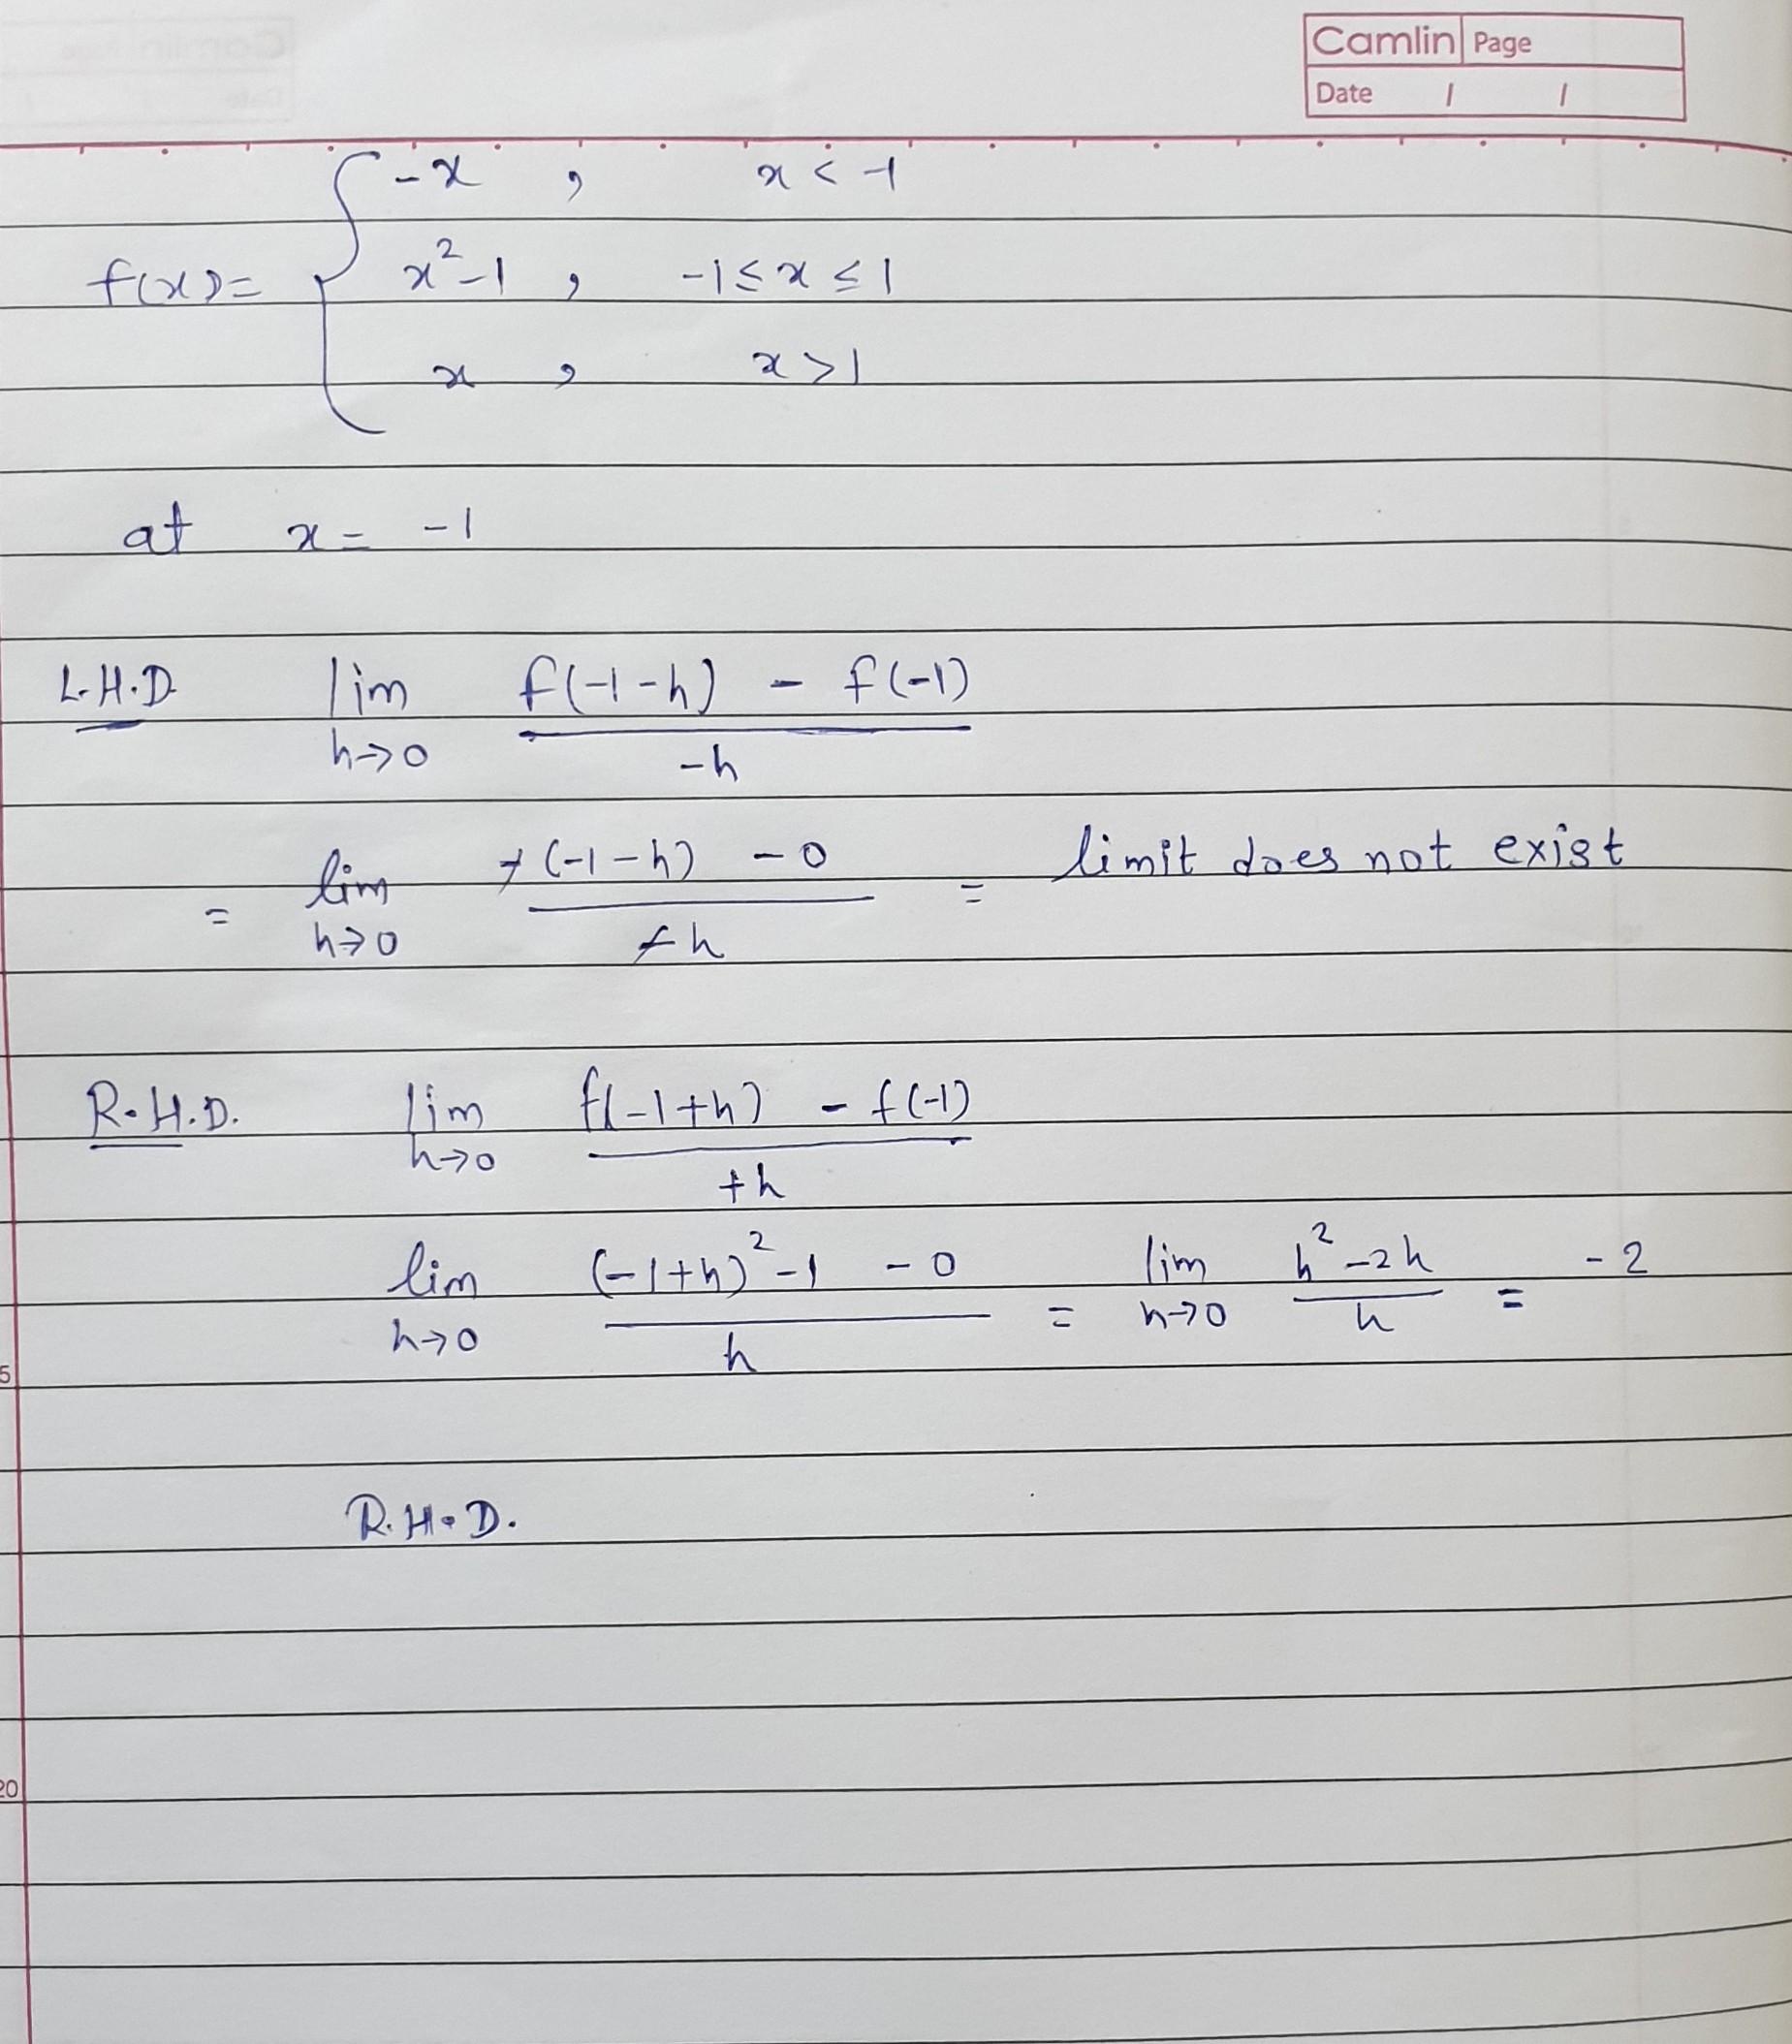 Camlin Page
Date / /
f(x) = { -x , x < -1
x² - 1 , -1 ≤ x ≤ 1
x , x > 1
at x = -1
L.H.D. lim h→0 f(-1-h) - f(-1) / -h
= lim h→0 -(-1-h) - 0 / -h = limit does not exist
R.H.D. lim h→0 f(-1+h) - f(-1) / +h
lim h→0 (-1+h)² - 1 - 0 / h = lim h→0 h² - 2h / h = -2
5
R.H.D.
20